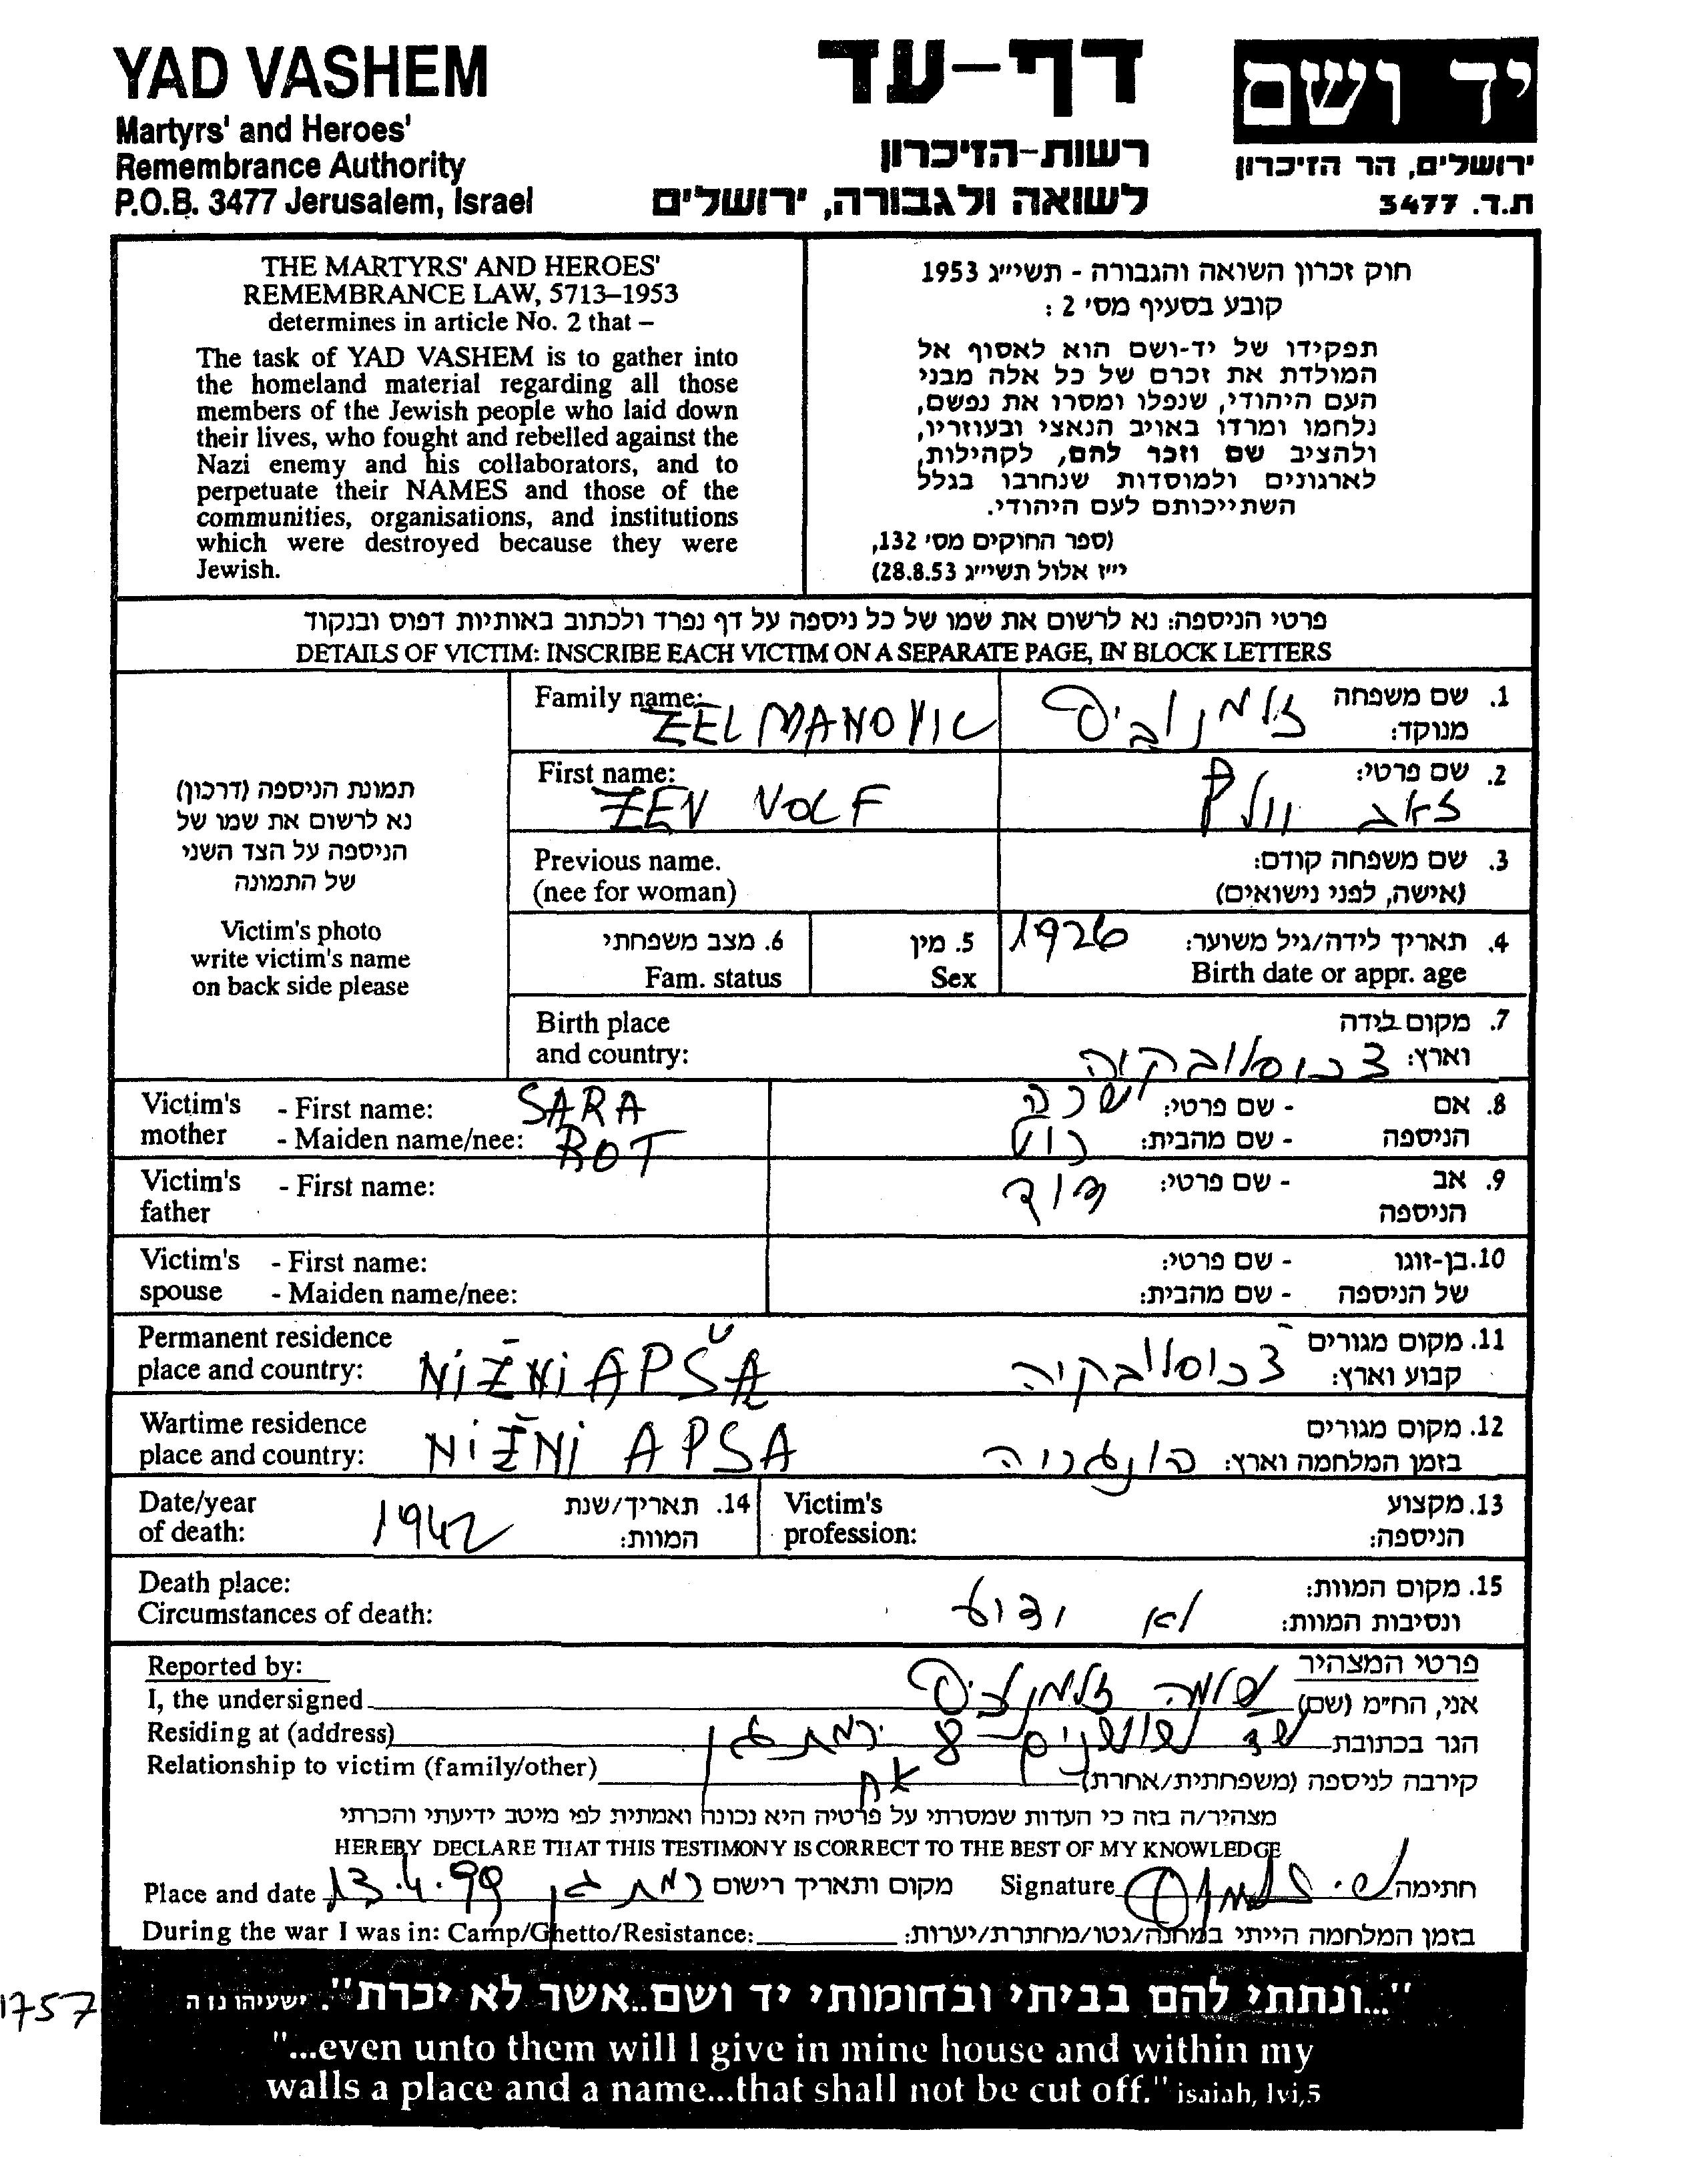 YAD VASHEM
Martyrs' and Heroes'
Remembrance Authority
P.O.B. 3477 Jerusalem, Israel
דף-עד
רשות-הזיכרון
לשואה ולגבורה, ירושלים
יד ושם
ירושלים, הר הזיכרון
ת.ד. 3477
THE MARTYRS' AND HEROES'
REMEMBRANCE LAW, 5713–1953
determines in article No. 2 that –
The task of YAD VASHEM is to gather into
the homeland material regarding all those
members of the Jewish people who laid down
their lives, who fought and rebelled against the
Nazi enemy and his collaborators, and to
perpetuate their NAMES and those of the
communities, organisations, and institutions
which were destroyed because they were
Jewish.
חוק זכרון השואה והגבורה - תשי"ג 1953
קובע בסעיף מס' 2 :
תפקידו של יד-ושם הוא לאסוף אל
המולדת את זכרם של כל אלה מבני
העם היהודי, שנפלו ומסרו את נפשם,
נלחמו ומרדו באויב הנאצי ובעוזריו,
ולהציב שם וזכר להם, לקהילות,
לארגונים ולמוסדות שנחרבו בגלל
השתייכותם לעם היהודי.
(ספר החוקים מס' 132,
י"ז אלול תשי"ג 28.8.53)
פרטי הניספה: נא לרשום את שמו של כל ניספה על דף נפרד ולכתוב באותיות דפוס ובנקוד
DETAILS OF VICTIM: INSCRIBE EACH VICTIM ON A SEPARATE PAGE, IN BLOCK LETTERS
תמונת הניספה (דרכון)
נא לרשום את שמו של
הניספה על הצד השני
של התמונה
Victim's photo
write victim's name
on back side please
Family name: ZELMANOVIC זלמנוביס 1. שם משפחה
מנוקד:
First name: ZEV VOLF זאב וולף 2. שם פרטי:
Previous name. 3. שם משפחה קודם:
(nee for woman) (אישה, לפני נישואים)
6. מצב משפחתי 5. מין 1926 4. תאריך לידה/גיל משוער:
Fam. status Sex Birth date or appr. age
Birth place 7. מקום לידה
and country: וארץ: צכוסלובקיה
Victim's - First name: SARA שרה - שם פרטי: 8. אם
mother - Maiden name/nee: ROT רוט - שם מהבית: הניספה
Victim's - First name: דוד - שם פרטי: 9. אב
father הניספה
Victim's - First name: - שם פרטי: 10. בן-זוגו
spouse - Maiden name/nee: - שם מהבית: של הניספה
Permanent residence 11. מקום מגורים
place and country: NIŽNI APŠA צכוסלובקיה קבוע וארץ:
Wartime residence 12. מקום מגורים
place and country: NIŽNI APSA הונגריה בזמן המלחמה וארץ:
Date/year 1942 14. תאריך/שנת Victim's 13. מקצוע
of death: המוות: profession: הניספה:
Death place: 15. מקום המוות:
Circumstances of death: לא ידוע ונסיבות המוות:
Reported by: פרטי המצהיר
I, the undersigned שלמה זלמנוביס אני, הח"מ (שם)
Residing at (address) שד שושנים 8 רמת גן הגר בכתובת
Relationship to victim (family/other) אח קירבה לניספה (משפחתית/אחרת)
מצהיר/ה בזה כי העדות שמסרתי על פרטיה היא נכונה ואמתית לפי מיטב ידיעתי והכרתי
HEREBY DECLARE THAT THIS TESTIMONY IS CORRECT TO THE BEST OF MY KNOWLEDGE
Place and date 13.4.99 רמת גן מקום ותאריך רישום Signature חתימה
During the war I was in: Camp/Ghetto/Resistance: בזמן המלחמה הייתי במחנה/גטו/מחתרת/יערות:
1757
"...ונתתי להם בביתי ובחומותי יד ושם..אשר לא יכרת". ישעיהו נו ה
"...even unto them will I give in mine house and within my
walls a place and a name...that shall not be cut off." isaiah, lvi,5